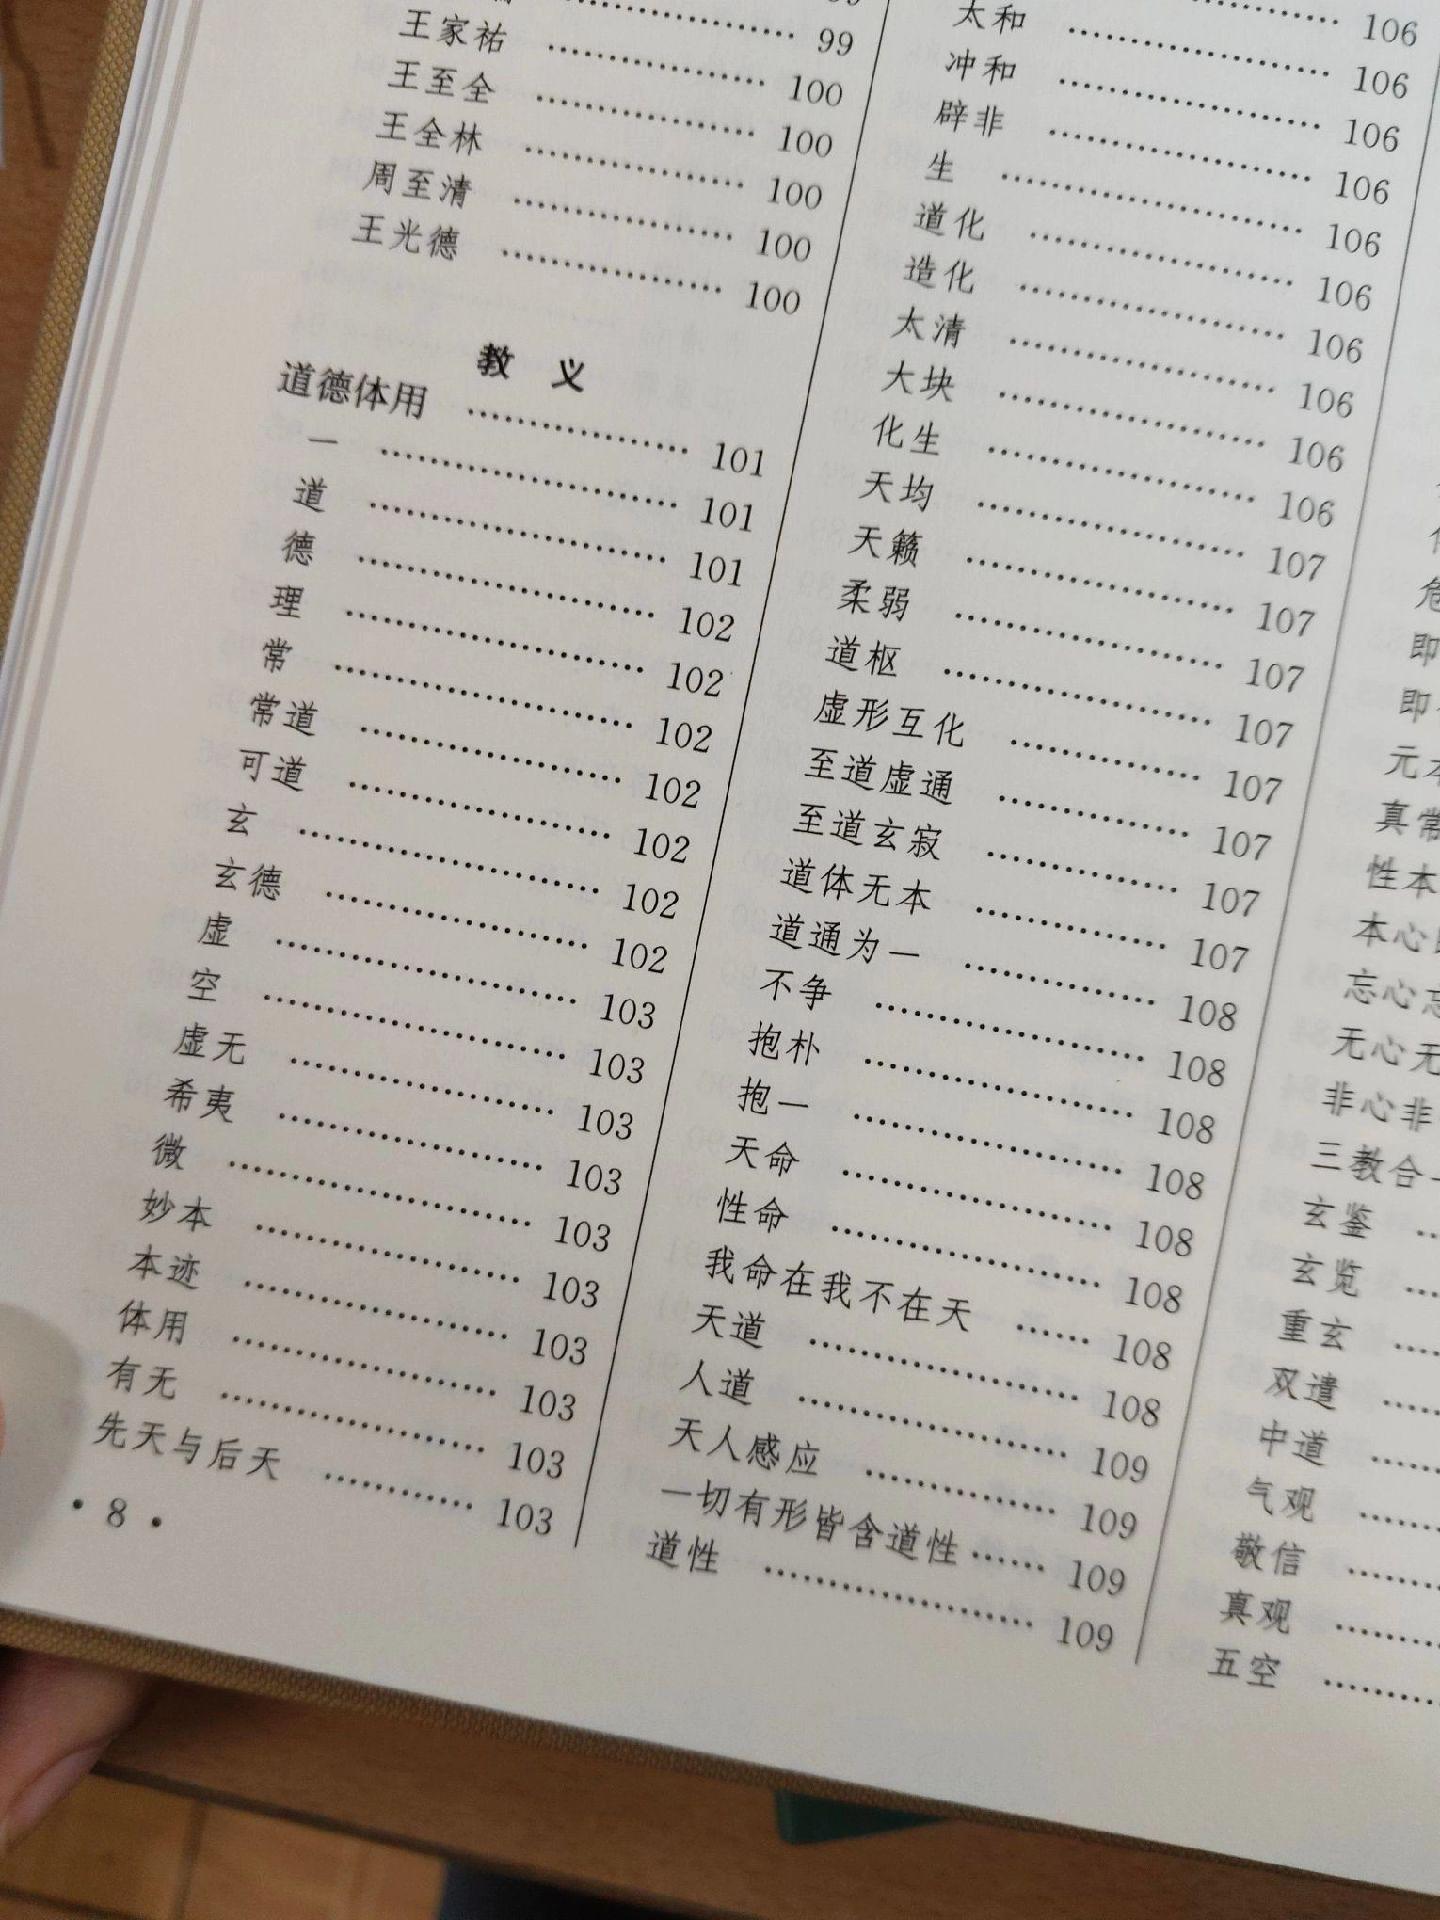 99
王家祐 …………… 100
王至全 …………… 100
王全林 …………… 100
周至清 …………… 100
王光德 …………… 100
教 义
道德体用 …………… 101
一 …………… 101
道 …………… 101
德 …………… 102
理 …………… 102
常 …………… 102
常道 …………… 102
可道 …………… 102
玄 …………… 102
玄德 …………… 102
虚 …………… 103
空 …………… 103
虚无 …………… 103
希夷 …………… 103
微 …………… 103
妙本 …………… 103
本迹 …………… 103
体用 …………… 103
有无 …………… 103
先天与后天 ………… 103
· 8 ·
106
太和 …………… 106
冲和 …………… 106
辟非 …………… 106
生 …………… 106
道化 …………… 106
造化 …………… 106
太清 …………… 106
大块 …………… 106
化生 …………… 106
天均 …………… 107
天籁 …………… 107
柔弱 …………… 107
道枢 …………… 107
虚形互化 ………… 107
至道虚通 ………… 107
至道玄寂 ………… 107
道体无本 ………… 107
道通为一 ………… 108
不争 …………… 108
抱朴 …………… 108
抱一 …………… 108
天命 …………… 108
性命 …………… 108
我命在我不在天 …… 108
天道 …………… 108
人道 …………… 109
天人感应 ………… 109
一切有形皆含道性 …… 109
道性 …………… 109
即
即
元本
真常
性本
本心
忘心忘
无心无
非心非
三教合一
玄鉴 …
玄览 …
重玄 …
双遣 …
中道 …
气观 …
敬信 …
真观 …
五空 …